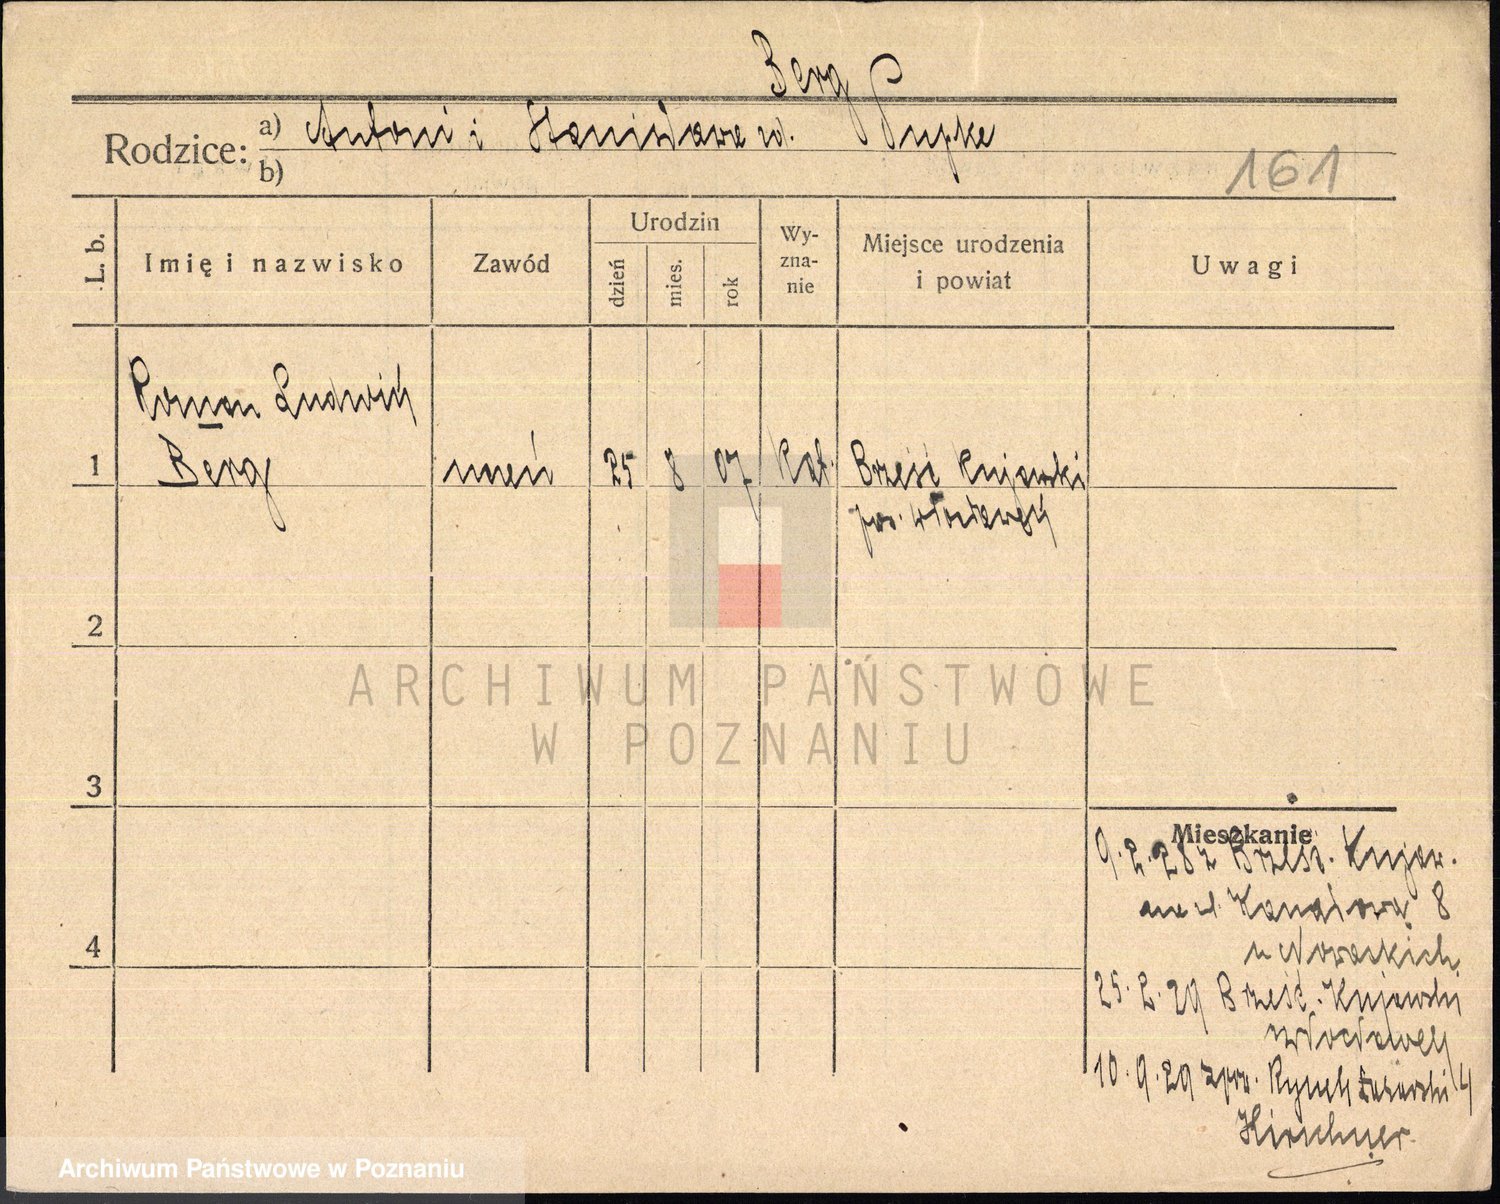 Berg
Rodzice: a) Antoni i Stanisława ur. Pupke
b)
161
L. b.
Imię i nazwisko
Zawód
Urodzin
dzień
mies.
rok
Wy-
zna-
nie
Miejsce urodzenia
i powiat
Uwagi
Roman Ludwik
1 Berg uczeń 25 8 07 Kat. Brześć Kujawski
pow. Włocławek
2
3
4
ARCHIWUM PAŃSTWOWE
W POZNANIU
Mieszkanie
9.2.28 z Brześć. Kujaw.
na ul. Kanałową 8
u Nowackich
25.2.29 Brześć. Kujawski
Włocławek
10.9.29 zpow. Rynek Łazarski 4
Hirschner.
Archiwum Państwowe w Poznaniu